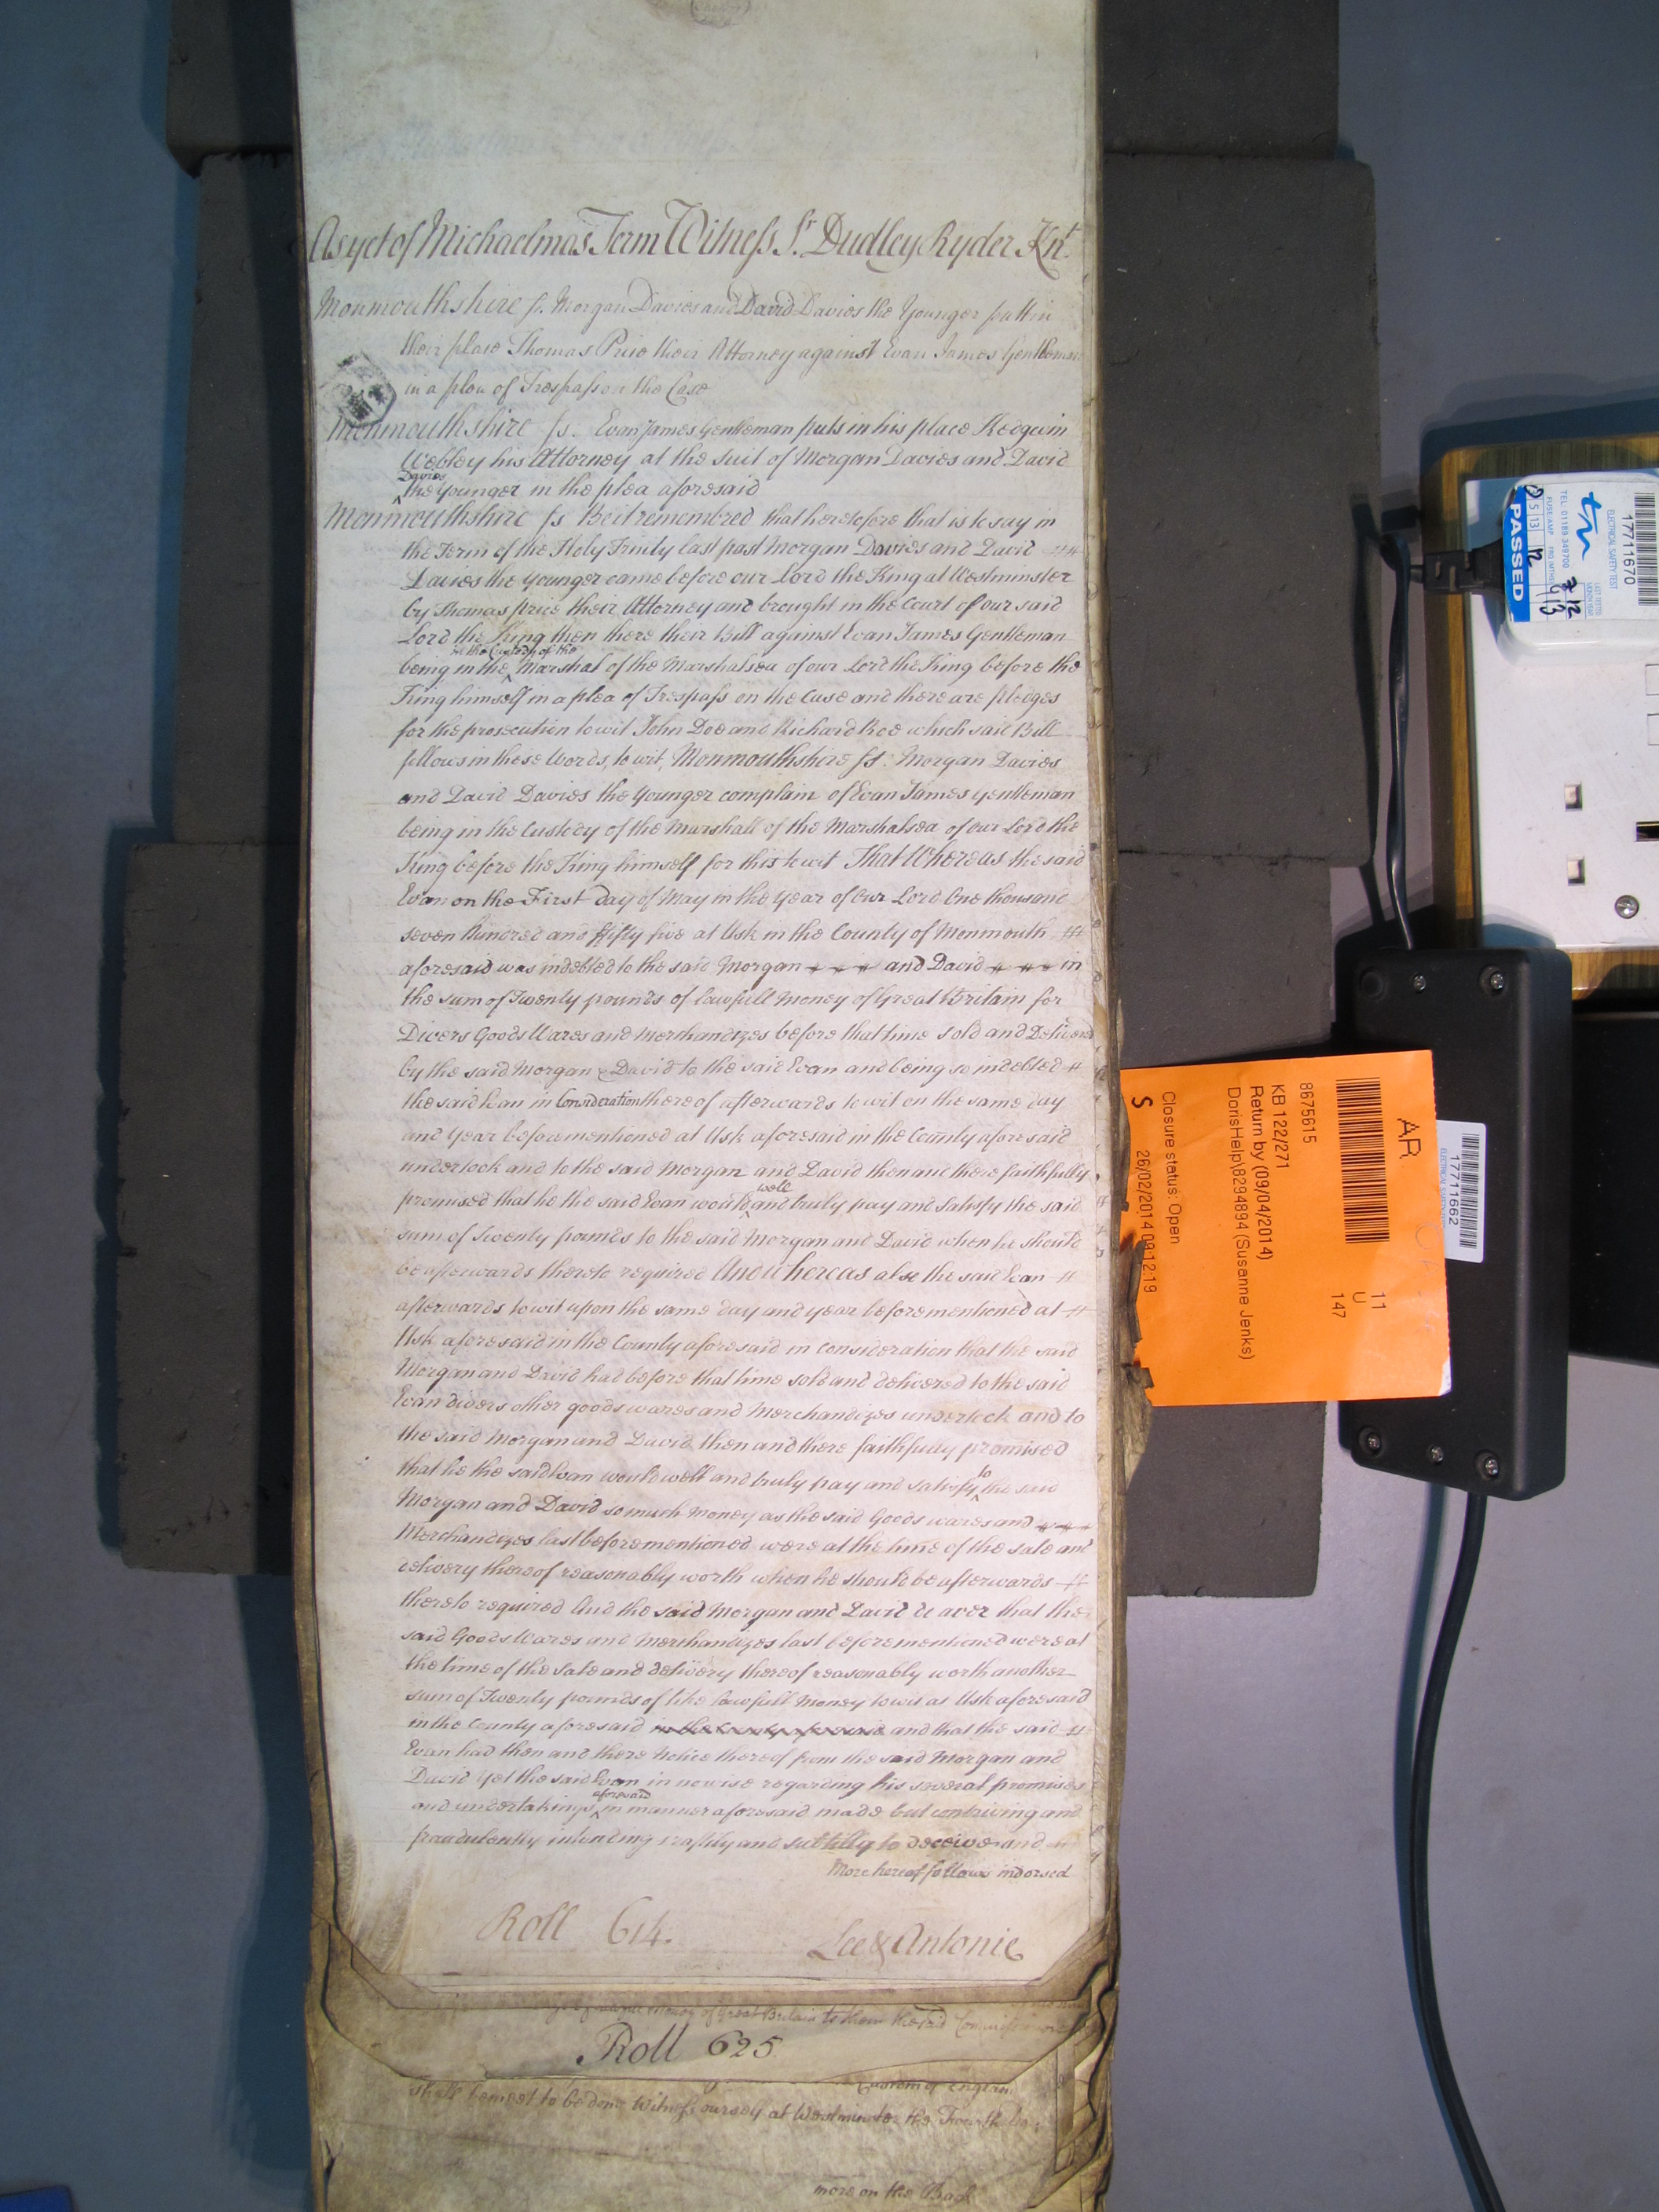 As yet of Michaelmas Term Witness Sr. Dudley Ryder Knt.
Monmouthshire ss. Morgan Davies and David Davies the Younger putt in
their place Thomas Price their Attorney against Evan James Gentleman
in a plea of Trespass on the Case
Monmouthshire ss. Evan James Gentleman puts in his place Kedgwin
Webley his Attorney at the suit of Morgan Davies and David
Davies
the Younger in the plea aforesaid
Monmouthshire ss Be it remembred that heretofore that is to say in
the Term of the Holy Trinity last past Morgan Davies and David
Davies the Younger came before our Lord the King at Westminster
by Thomas price their Attorney and brought in the Court of our said
Lord the King then there their Bill against Evan James Gentleman
in the Custody of the
being in the Marshal of the Marshalsea of our Lord the King before the
King himself in a plea of Trespass on the Case and there are pledges
for the prosecution to wit John Doe and Richard Roe which said Bill
follows in these Words, to wit, Monmouthshire ss: Morgan Davies
and David Davies the Younger complain of Evan James Gentleman
being in the Custody of the Marshall of the Marshalsea of our Lord the
King before the King himself for this to wit That Whereas the said
Evan on the First day of May in the Year of Our Lord One thousand
seven Hundred and fifty five at Usk in the County of Monmouth
aforesaid was indebted to the said Morgan and David in
the sum of Twenty pounds of lawfull Money of Great Britain for
Divers Goods Wares and Merchandizes before that time sold and Delivered
by the said Morgan & David to the said Evan and being so indebted
the said Evan in Consideration thereof afterwards to wit on the same day
and Year beforementioned at Usk aforesaid in the County aforesaid
undertook and to the said Morgan and David then and there faithfully
well
promised that he the said Evan would and truly pay and satisfy the said
sum of Twenty pounds to the said Morgan and David when he should
be afterwards thereto required And whereas also the said Evan
afterwards to wit upon the same day and year beforementioned at
Usk aforesaid in the County aforesaid in consideration that the said
Morgan and David had before that time sold and delivered to the said
Evan divers other goods wares and Merchandizes undertook and to
the said Morgan and David then and there faithfully promised
to
that he the said Evan would well and truly pay and satisfy the said
Morgan and David so much Money as the said Goods wares and
Merchandizes last beforementioned were at the time of the sale and
delivery thereof reasonably worth when he should be afterwards
thereto required And the said Morgan and David do aver that the
said Goods Wares and Merchandizes last beforementioned were at
the time of the sale and delivery thereof reasonably worth another
sum of Twenty pounds of like lawfull Money to wit at Usk aforesaid
in the County aforesaid in the County aforesaid and that the said
Evan had then and there Notice thereof from the said Morgan and
David Yet the said Evan in nowise regarding his several promises
aforesaid
and undertakings in manner aforesaid made but contriving and
fraudulently intending craftily and subtilly to deceive and
More hereof follows indorsed
Roll 614.
Lee & Antonie
Money of Great Britain to them the said
Roll 625
Custom of England
shall be meet to be done Witness ourself at Westminster the
more on the Back
AR
11
U
147
8675615
KB 122/271
Return by (09/04/2014)
DorisHelp\8294894 (Susanne Jenks)
Closure status: Open
S
26/02/2014 09:12:19
17711662
17711670
ELECTRICAL SAFETY TEST
TEL: 01189 349700
PASSED